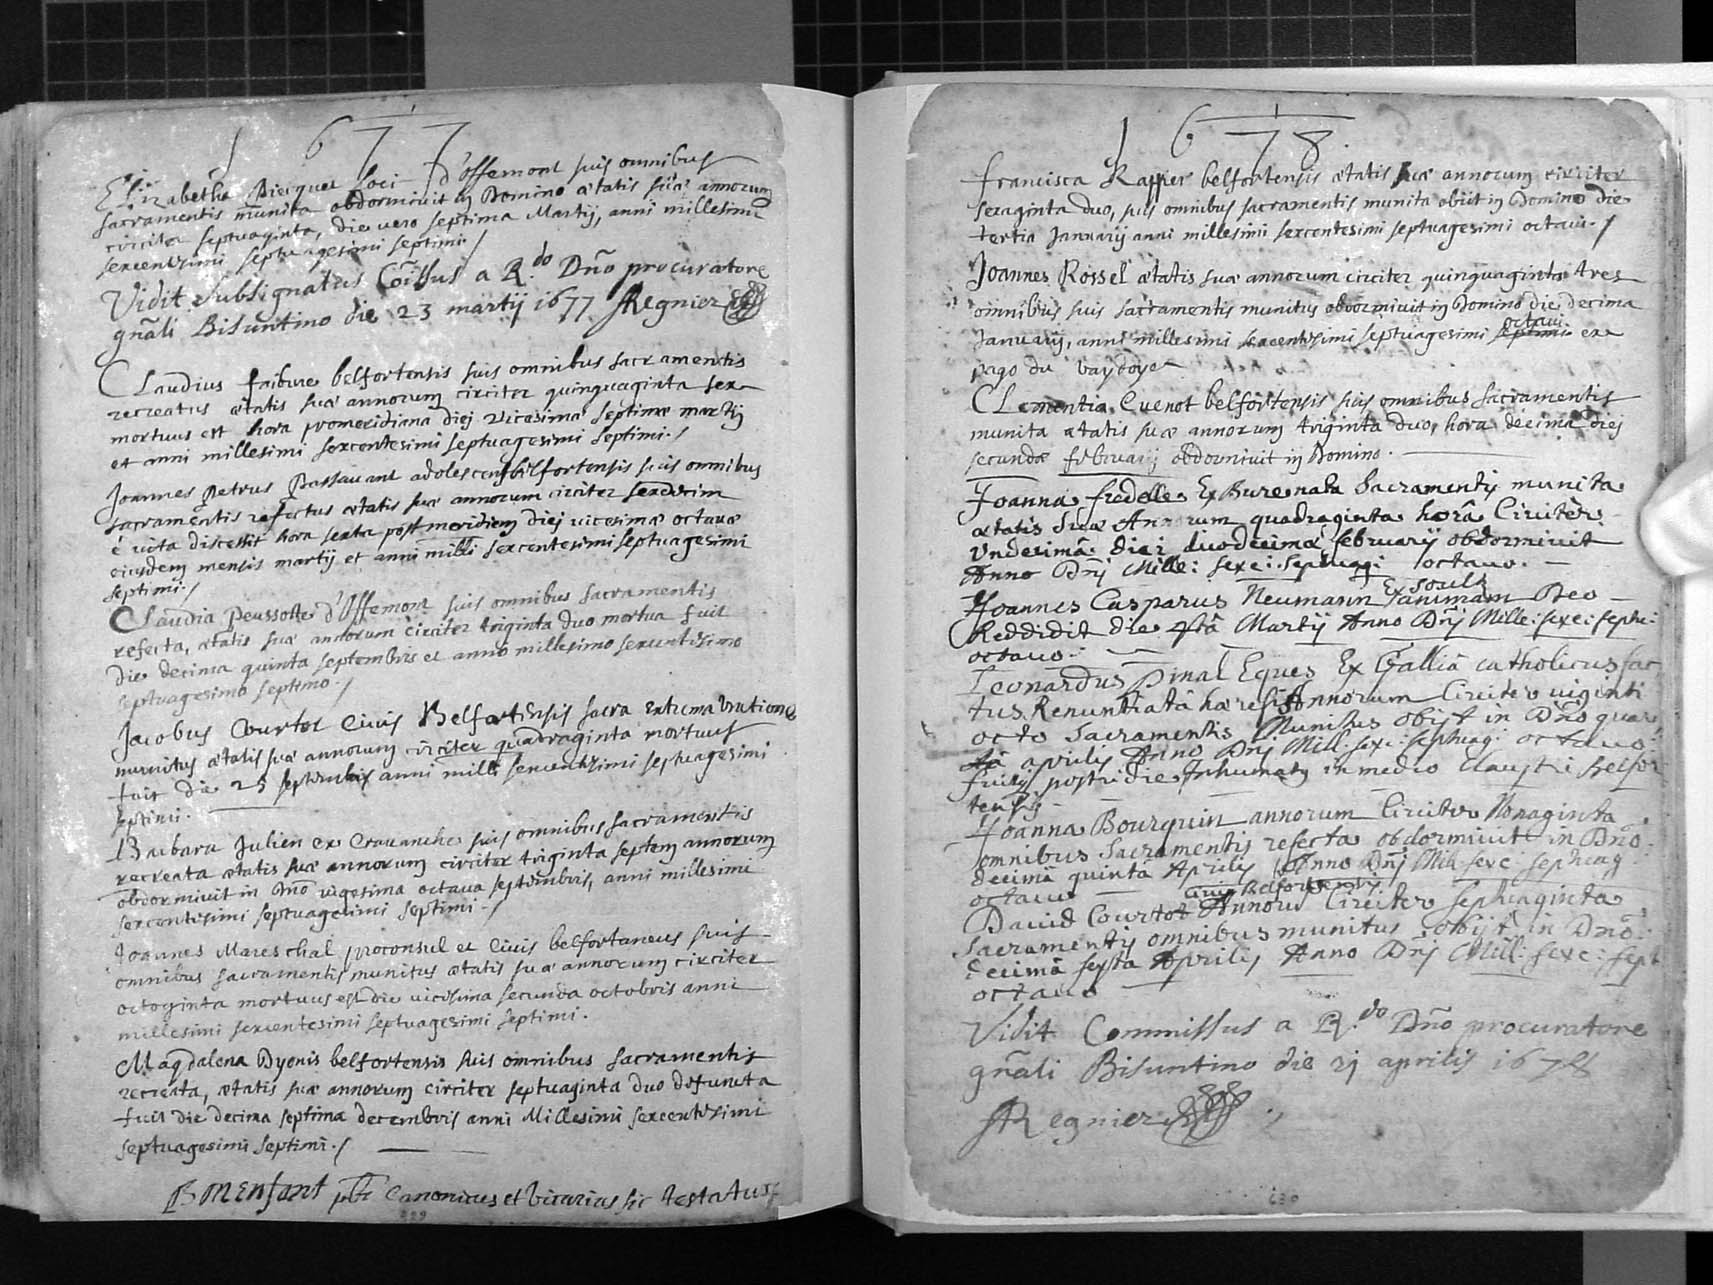 1677
Elizabetha Piequer loci d'offemont suis omnibus
sacramentis munita obdormiuit in Domino ætatis suæ annorum
circiter septuaginta, die vero septima Martij, anni millesimi
sexcentesimi septuagesimi septimi./
Vidit Subsignatus Co͠issus a R.do Dn͠o procuratore
gn͠ali Bisuntino die 23 martij 1677 Regnier
Claudius faibure belfortensis suis omnibus sacramentis
recreatus ætatis suæ annorum circiter quinquaginta sex
mortuus est hora promeridiana diej vicesimæ septimæ martij
et anni millesimi sexcentesimi septuagesimi septimi./
Joannes Petrus Passauant adolescens belfortensis suis omnibus
sacramentis refectus ætatis suæ annorum circiter sexdecim
è vita discessit hora sexta post meridiem diej vicesimæ octauæ
eiusdem mensis martij et anni milli sexcentesimi septuagesimi
septimi./
Claudia Peussotte d'Offemont suis omnibus sacramentis
refecta, ætatis suæ annorum circiter triginta duo mortua fuit
die decima quinta septembris et anno millesimo sexcentesimo
septuagesimo septimo./
Jacobus Courtot Ciuis Belfortensis sacra extrema Vnctione
munitus ætatis suæ annorum circiter quadraginta mortuus
fuit die 25 septembris anni milli sexcentesimi septuagesimi
septimi.
Barbara Julien ex Crauanche suis omnibus sacramentis
recreata ætatis suæ annorum circiter triginta septem annorum
obdormiuit in Dn͠o vigesima octaua septembris, anni millesimi
sexcentesimi septuagesimi septimi./
Joannes Mareschal proconsul et Ciuis belfortaneus suis
omnibus sacramentis munitus ætatis suæ annorum circiter
octoginta mortuus est die vicesima secunda octobris anni
millesimi sexcentesimi septuagesimi septimi.
Magdalena Dyonis belfortensis suis omnibus sacramentis
recreata, ætatis suæ annorum circiter septuaginta duo defuncta
fuit die decima septima decembris anni Millesimi sexcentesimi
septuagesimi septimi./
Bonenfant pbr Canonicus et vicarius sic testatus
229
1678.
francisca Rapper belfortensis ætatis suæ annorum circiter
sexaginta duo, suis omnibus sacramentis munita obiit in Domino die
tertia Januarij anni millesimi sexcentesimi septuagesimi octaui./
Joannes Rossel ætatis suæ annorum circiter quinquaginta tres
omnibus suis sacramentis munitus obdormiuit in Domino die decima
Januarij, anni millesimi sexcentesimi septuagesimi septimi octaui. ex
pago du vaydoye
Clementia Cuenot belfortensis suis omnibus sacramentis
munita ætatis suæ annorum triginta duo, hora decima diej
secundæ februarij obdormiuit in Domino.
Joanna fredelle Ex Bure nata Sacramentis munita
ætatis Suæ Annorum quadraginta horâ Circiter
Vndesimâ diei duodecimæ februarij obdormiuit
Anno Dn͠j Mille: sexc: septuagi octauo.
Joannes Casparus Neumann Ex soultz animam Deo
Reddidit die 4tâ Martij Anno Dn͠j Mille: sexc: septu:
octauo.
Leonardus pinal Eques Ex Galliâ catholicus fac
tus Renuntiatâ hæresi Annorum Circiter viginti
octo Sacramentis Munitus obijt in Dn͠o quar
tâ aprilis Anno Dn͠j Mill: sexc: septuag: octauo:
fuitq postridie Inhumatus in medio claustri belfor
tensis
Joanna Bourquin annorum Circiter Nonaginta
omnibus Sacramentis refecta obdormiuit in Dn͠o.
decimâ quintâ Aprilis Anno Dn͠j Mill: sexc: septuag
octauo
Dauid Courtot ciuis Belfortensis Annorū Circiter septuaginta
Sacramentis omnibus munitus obijt in Dn͠o:
Decimâ sexta Aprilis Anno Dn͠j Mill: sexc: sept
octauo
Vidit Commissus a R.do Dn͠o procuratore
gn͠ali Bisuntino die 21 aprilis 1678
Regnier
230